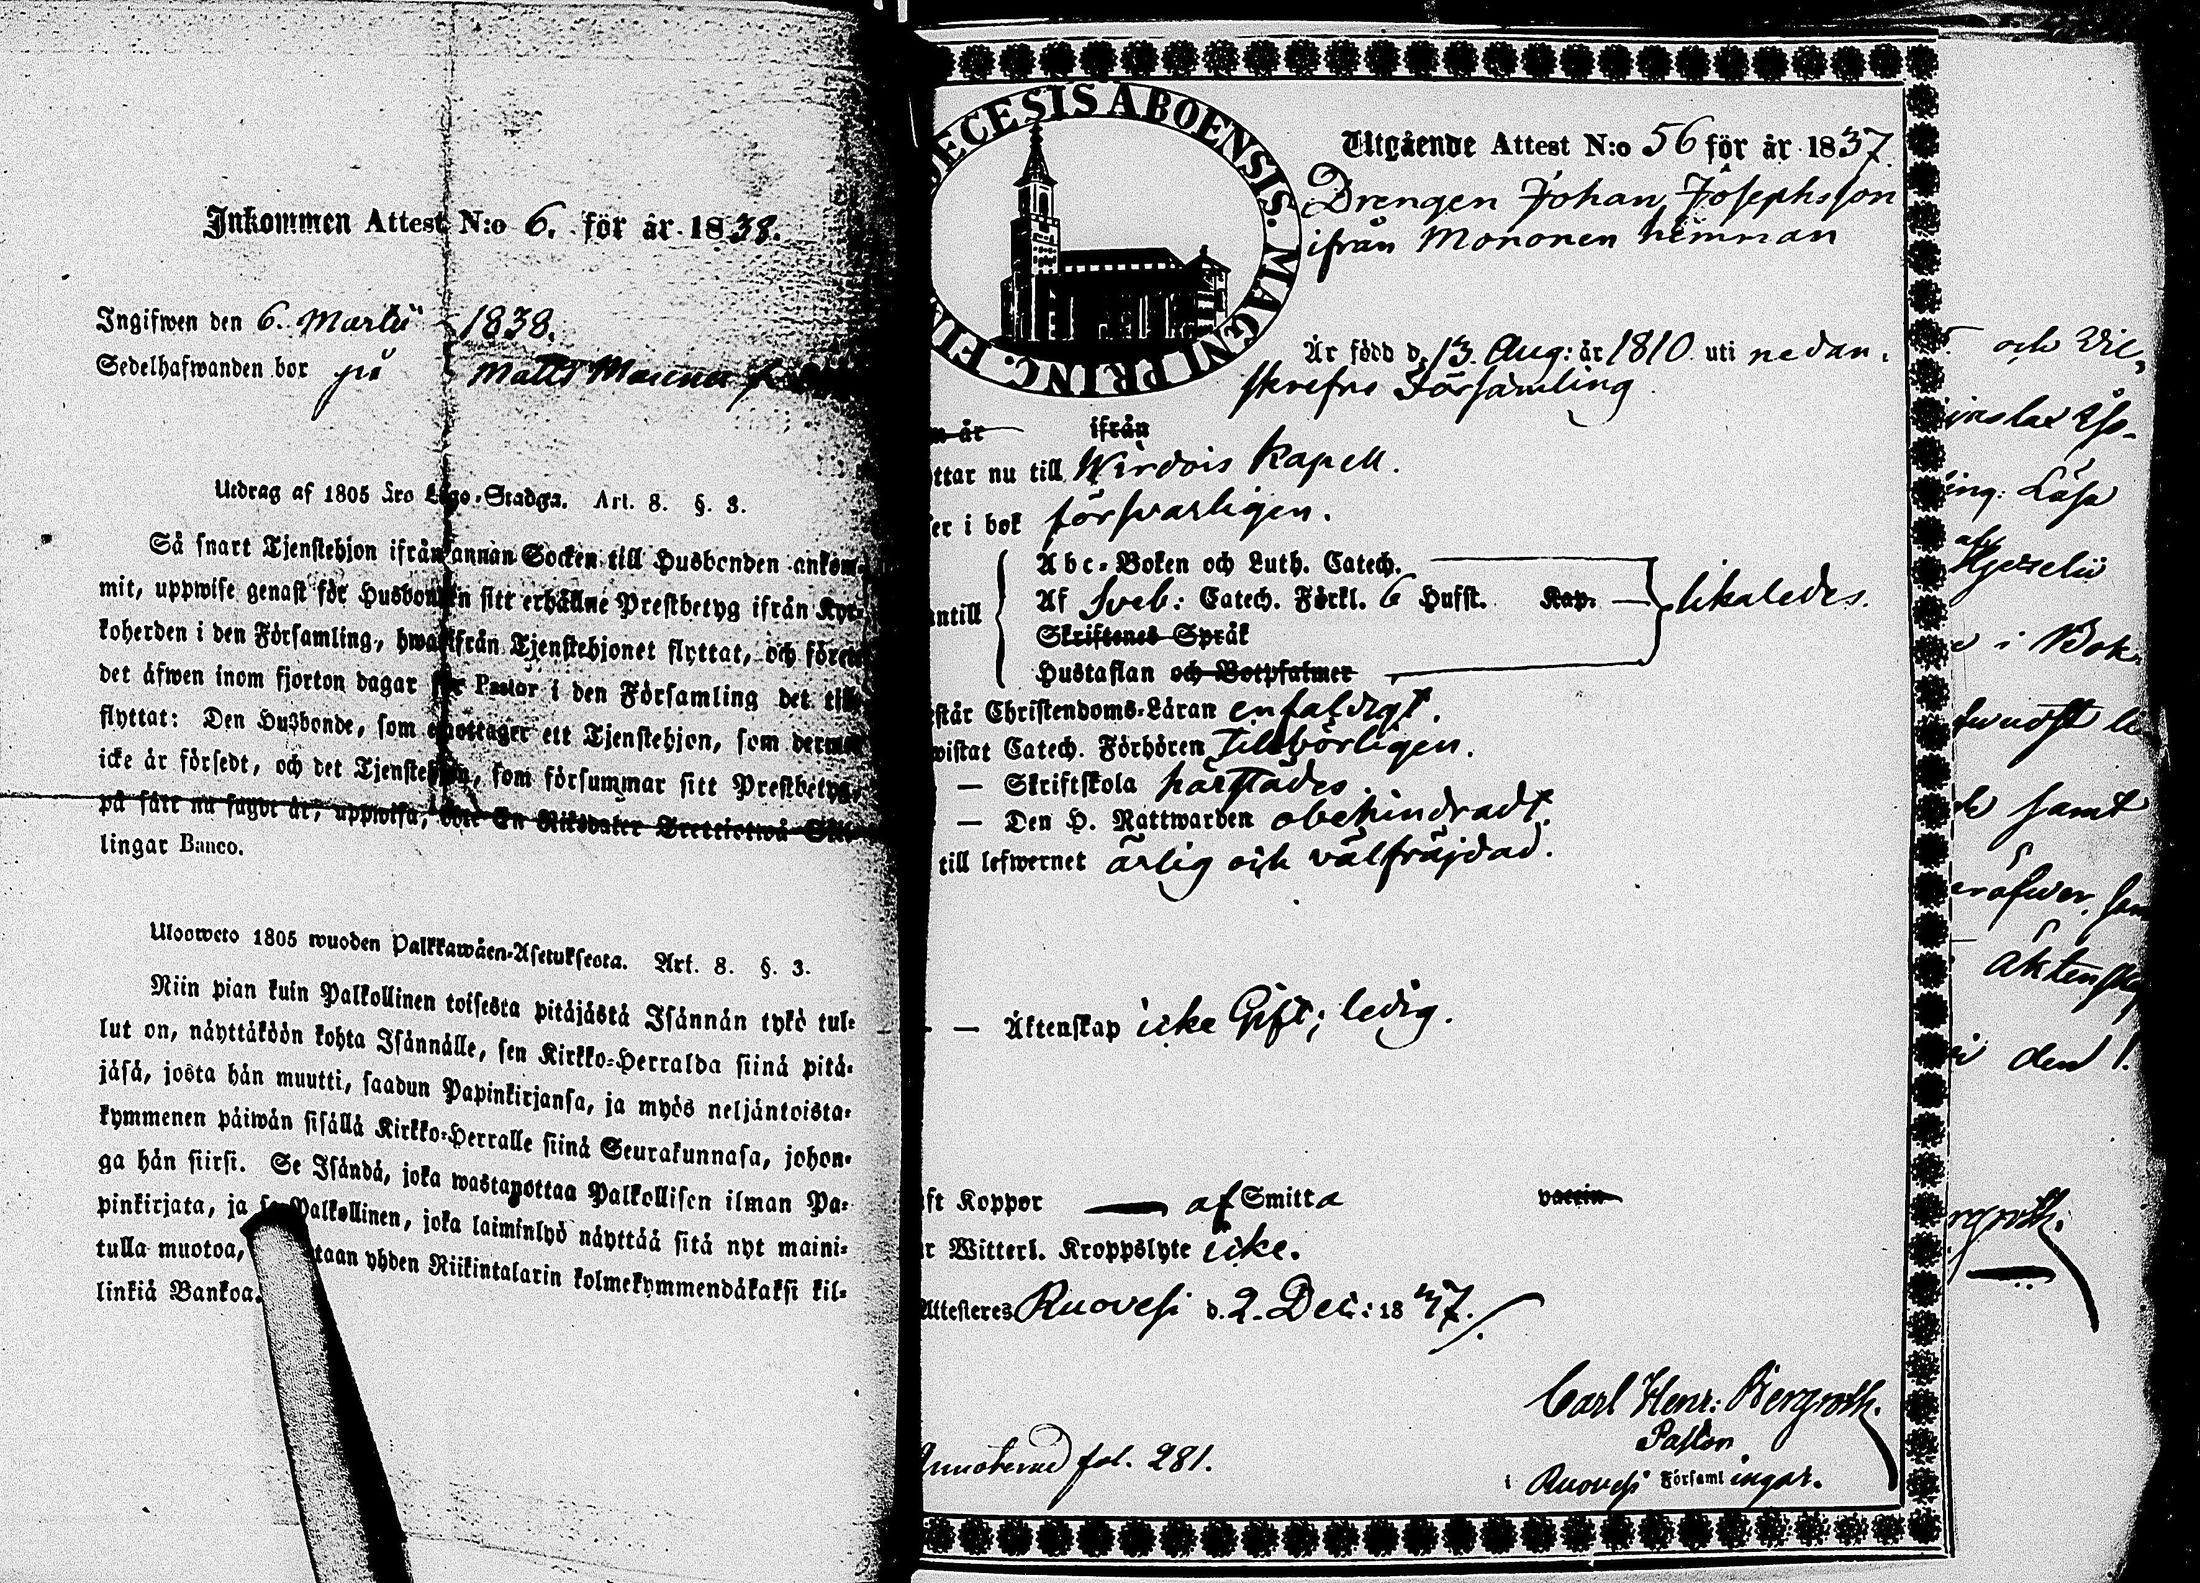 Inkommen Attest N:o 6. för år 1838.
Ingifwen den 6. Martii 1838.
Sedelhafwanden bor på Matts
Utdrag af 1805 års Lego-Stadga. Art. 8. §. 3.
Så snart Tjenstehjon ifrån annan Socken till Husbonden ankom-
mit, uppwise genast för Husbonden sitt erhållne Prestbetyg ifrån Kyr-
koherden i den Församling, hwarifrån Tjenstehjonet flyttat, och förete
det äfwen inom fjorton dagar för Pastor i den Församling det till-
flyttat: Den Husbonde, som emottager ett Tjenstehjon, som dermed
icke är försedt, och det Tjenstehjon, som försummar sitt Prestbetyg,
på sätt nu sagdt är, uppwisa, böte En Riksdaler Trettiotwå Skil-
lingar Banco.
Ulosweto 1805 wuoden Palkkawäen-Asetuksesta. Art. 8. §. 3.
Niin pian kuin Palkollinen toisesta pitäjästä Isännän tykö tul-
lut on, näyttäköön kohta Isännälle, sen Kirkko-Herralda siinä pitä-
jäsä, josta hän muutti, saadun Papinkirjansa, ja myös neljäntoista-
kymmenen päiwän sisällä Kirkko-Herralle siinä Seurakunnasa, johon-
ga hän siirsi. Se Isändä, joka wastaxottaa Palkollisen ilman Pa-
pinkirjata, ja se Palkollinen, joka laiminlyö näyttää sitä nyt maini-
tulla muotoa, taan yhden Riikintalarin kolmekymmendäkaksi kil-
linkiä Bankoa.
DECESIS ABOENSIS. MAGNI PRINC. FIN
Utgående Attest N:o 56 för år 1837.
Drengen Johan Josephsson
ifrån Mononen hemman
Är född d. 13. Aug: år 1810 uti nedan-
skrefne Församling
n är ifrån
ttar nu till Wirdois Kapell.
ser i bok försvarligen.
Abc-Boken och Luth. Catech.
antill Af Sveb: Catech. Förkl. 6 Hufst. Kap. likaledes.
Skriftenes Språk
Hustaflan och Botpsalmer
står Christendoms-Läran enfaldigt.
wistat Catech. Förhören tillbörligen.
— Skriftskola härstädes.
— Den H. Nattwarden obehindradt.
till lefwernet ärlig och välfräjdad.
— Äktenskap icke Gift; ledig.
ft Koppor — af Smitta vaccin
r Witterl. Kroppslyte icke.
Attesteres Ruovesi d. 2. Dec: 1837.
Carl Henr: Bergroth.
Pastor
i Ruovesi Församlingar.
Annoterad fol. 281.
och
ing: Läsa
i Bok
samt
i den 1.